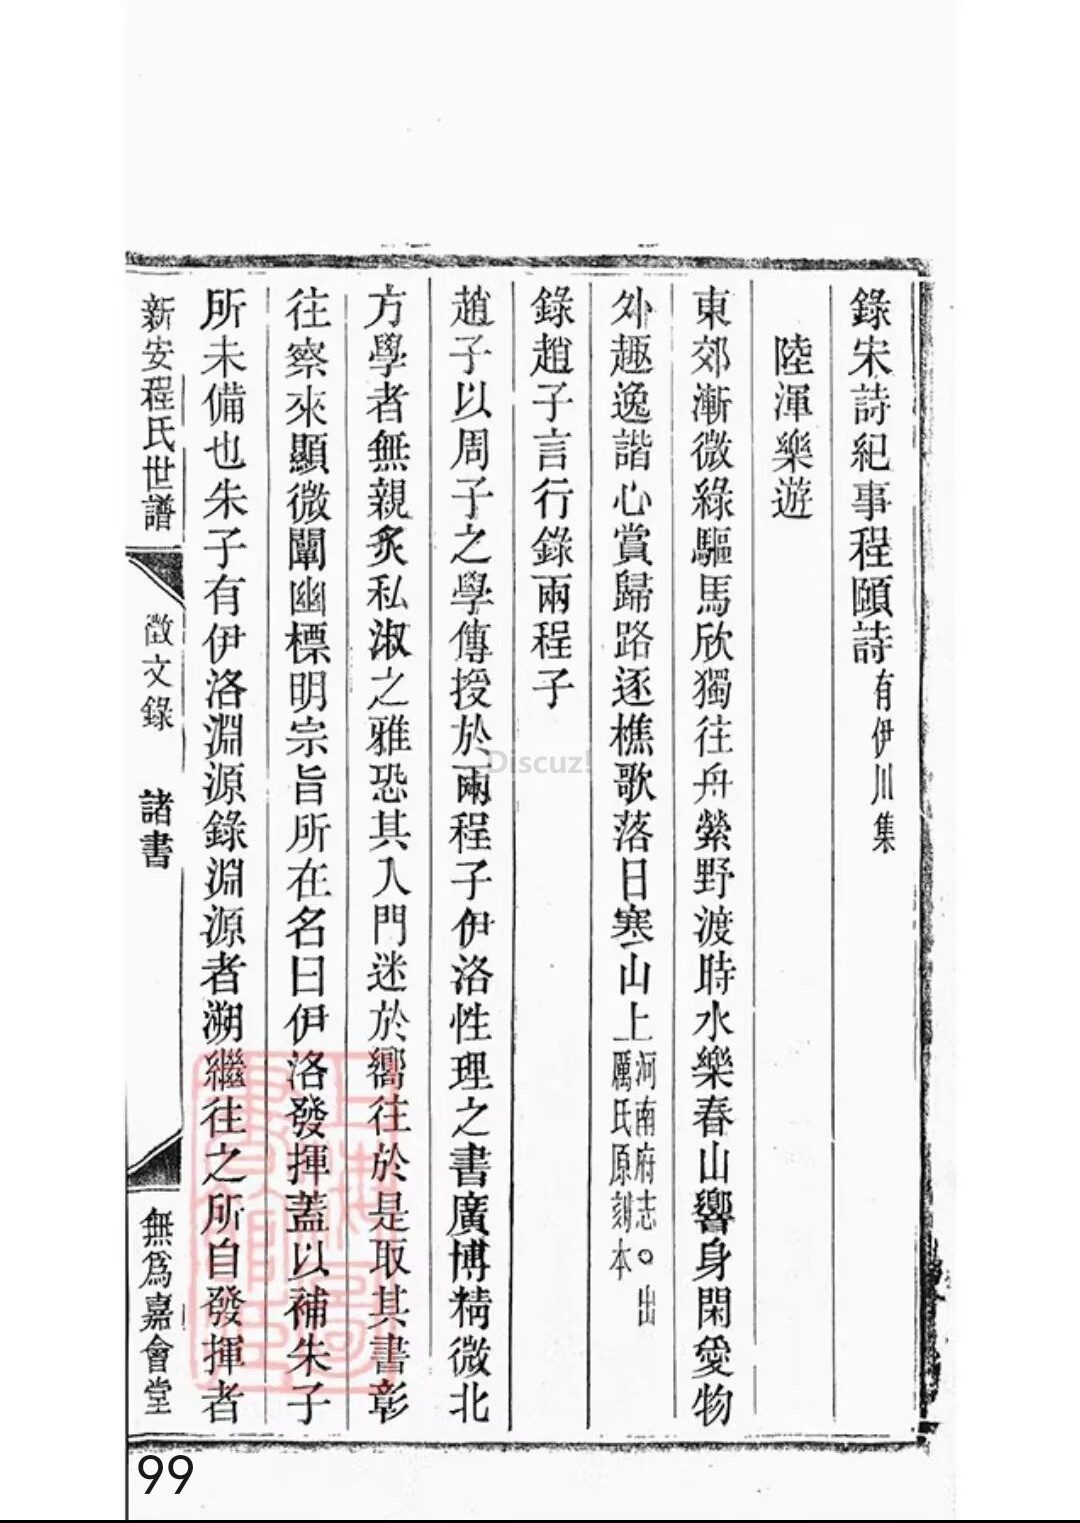 錄宋詩紀事程頤詩有伊川集
陸渾樂遊
東郊漸微綠驅馬欣獨往舟縈野渡時水樂春山響身閑愛物
外趣逸諧心賞歸路逐樵歌落日寒山上河南府志○出
厲氏原刻本
錄趙子言行錄兩程子
趙子以周子之學傳授於兩程子伊洛性理之書廣博精微北
方學者無親炙私淑之雅恐其入門迷於嚮往於是取其書彰
往察來顯微闡幽標明宗旨所在名曰伊洛發揮蓋以補朱子
所未備也朱子有伊洛淵源錄淵源者溯繼往之所自發揮者
新安程氏世譜 徵文錄 諸書 無為嘉會堂
Discuz!
99